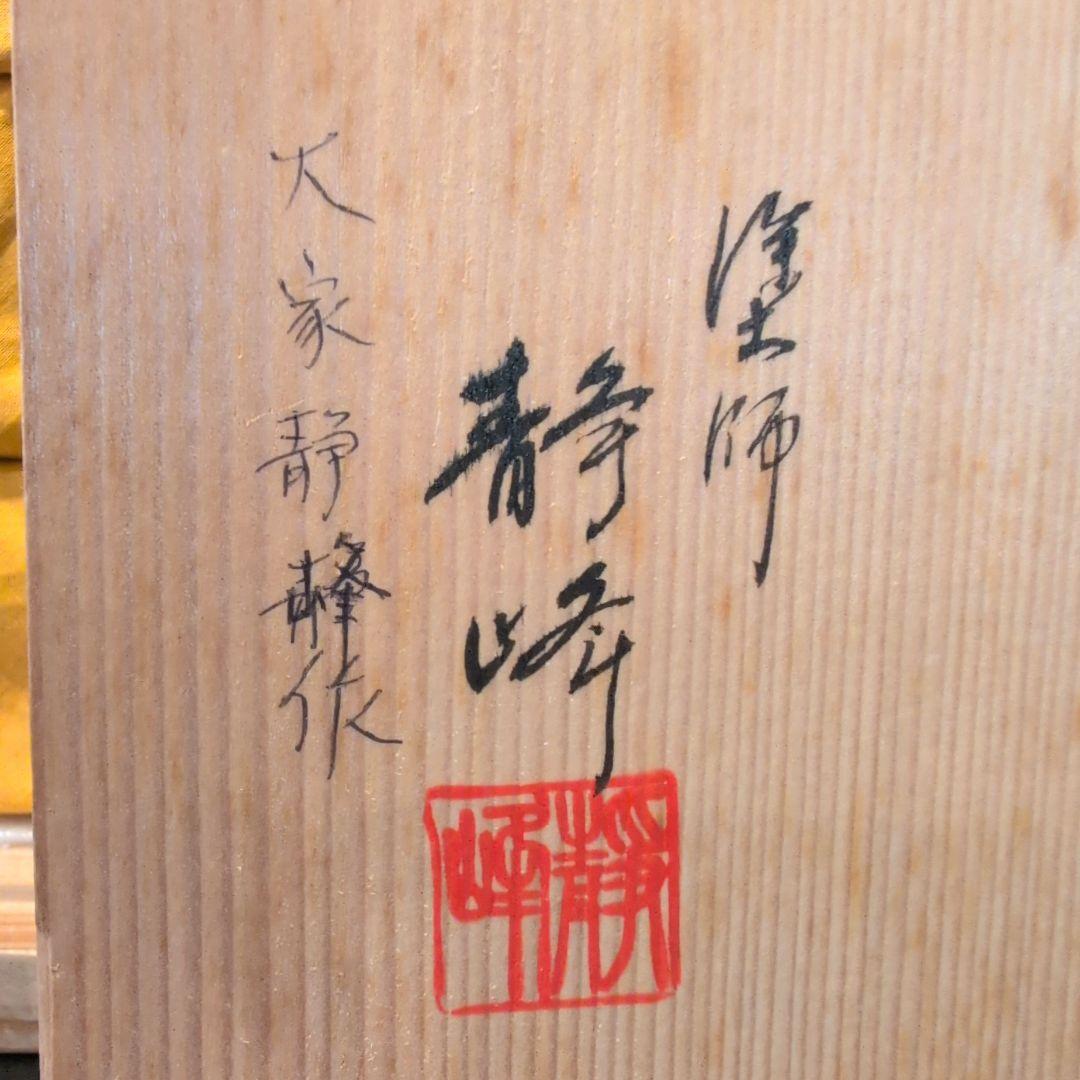 塗師
静峰
大家静作
静峰